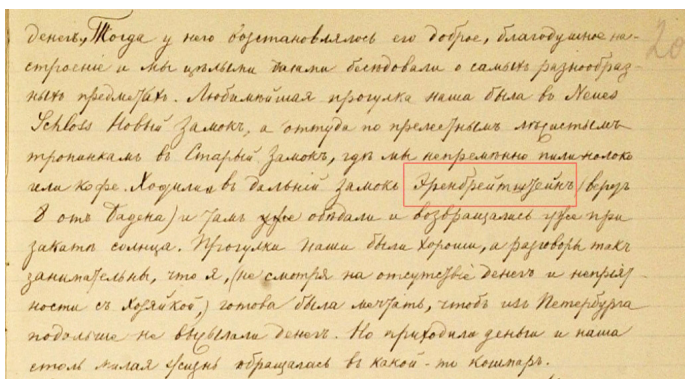 денегъ, Тогда у него возстановлялось его доброе, благодушное на-
строеніе и мы цѣлыми днями бесѣдовали о самыхъ разнообраз-
ныхъ предметахъ. Любимѣйшая прогулка наша была въ Neues
Schloss Новый Замокъ, а оттуда по прелестнымъ лѣсистымъ
тропинкамъ въ Старый Замокъ, гдѣ мы непремѣнно пили молоко
или кофе. Ходили и въ дальній замокъ Эренбрейтштейнъ (верстъ
8 отъ Бадена) и тамъ уже обѣдали и возвращались уже при
закатѣ солнца. Прогулки наши были хороши, а разговоры такъ
занимательны, что я, (не смотря на отсутствіе денегъ и непріят-
ности съ хозяйкой,) готова была мечтать, чтобъ изъ Петербурга
подольше не высылали денегъ. Но приходили деньги и наша
столь милая жизнь обращалась въ какой-то кошмаръ.
20